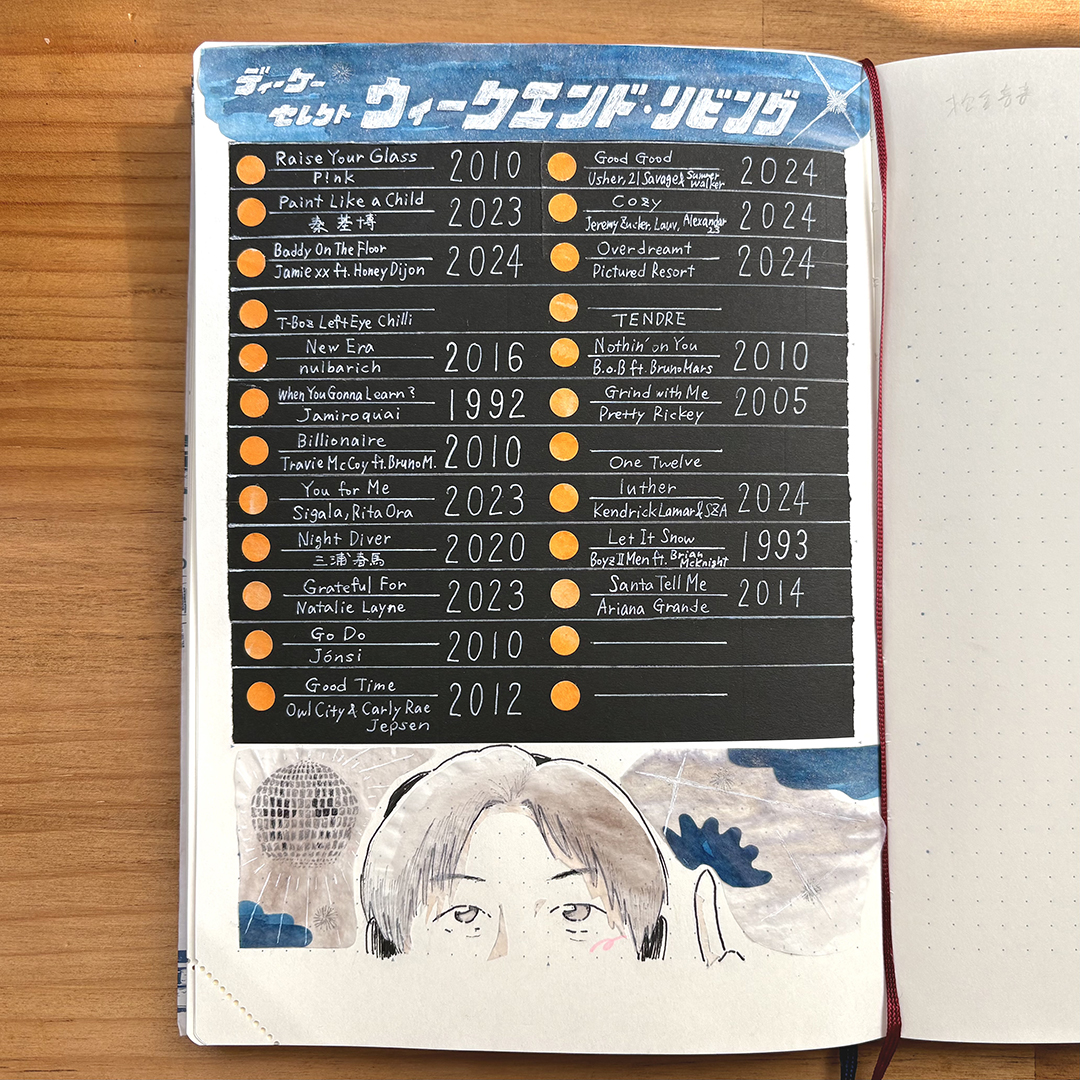 ディーケー
セレクト ウィークエンド・リビング
Raise Your Glass
P!nk
2010
Paint Like a Child
秦 基博
2023
Baddy On The Floor
Jamie xx ft. Honey Dijon
2024
T-Boz Left Eye Chilli
New Era
nulbarich
2016
When You Gonna Learn?
Jamiroquai
1992
Billionaire
Travie McCoy ft. Bruno M.
2010
You for Me
Sigala, Rita Ora
2023
Night Diver
三浦春馬
2020
Grateful For
Natalie Layne
2023
Go Do
Jónsi
2010
Good Time
Owl City & Carly Rae
Jepsen
2012
Good Good
Usher, 21 Savage & Summer Walker
2024
Cozy
Jeremy Zucker, Lauv, Alexander 23
2024
Overdreamt
Pictured Resort
2024
TENDRE
Nothin' on You
B.o.B ft. Bruno Mars
2010
Grind with Me
Pretty Rickey
2005
One Twelve
luther
Kendrick Lamar & SZA
2024
Let It Snow
Boyz II Men ft. Brian McKnight
1993
Santa Tell Me
Ariana Grande
2014